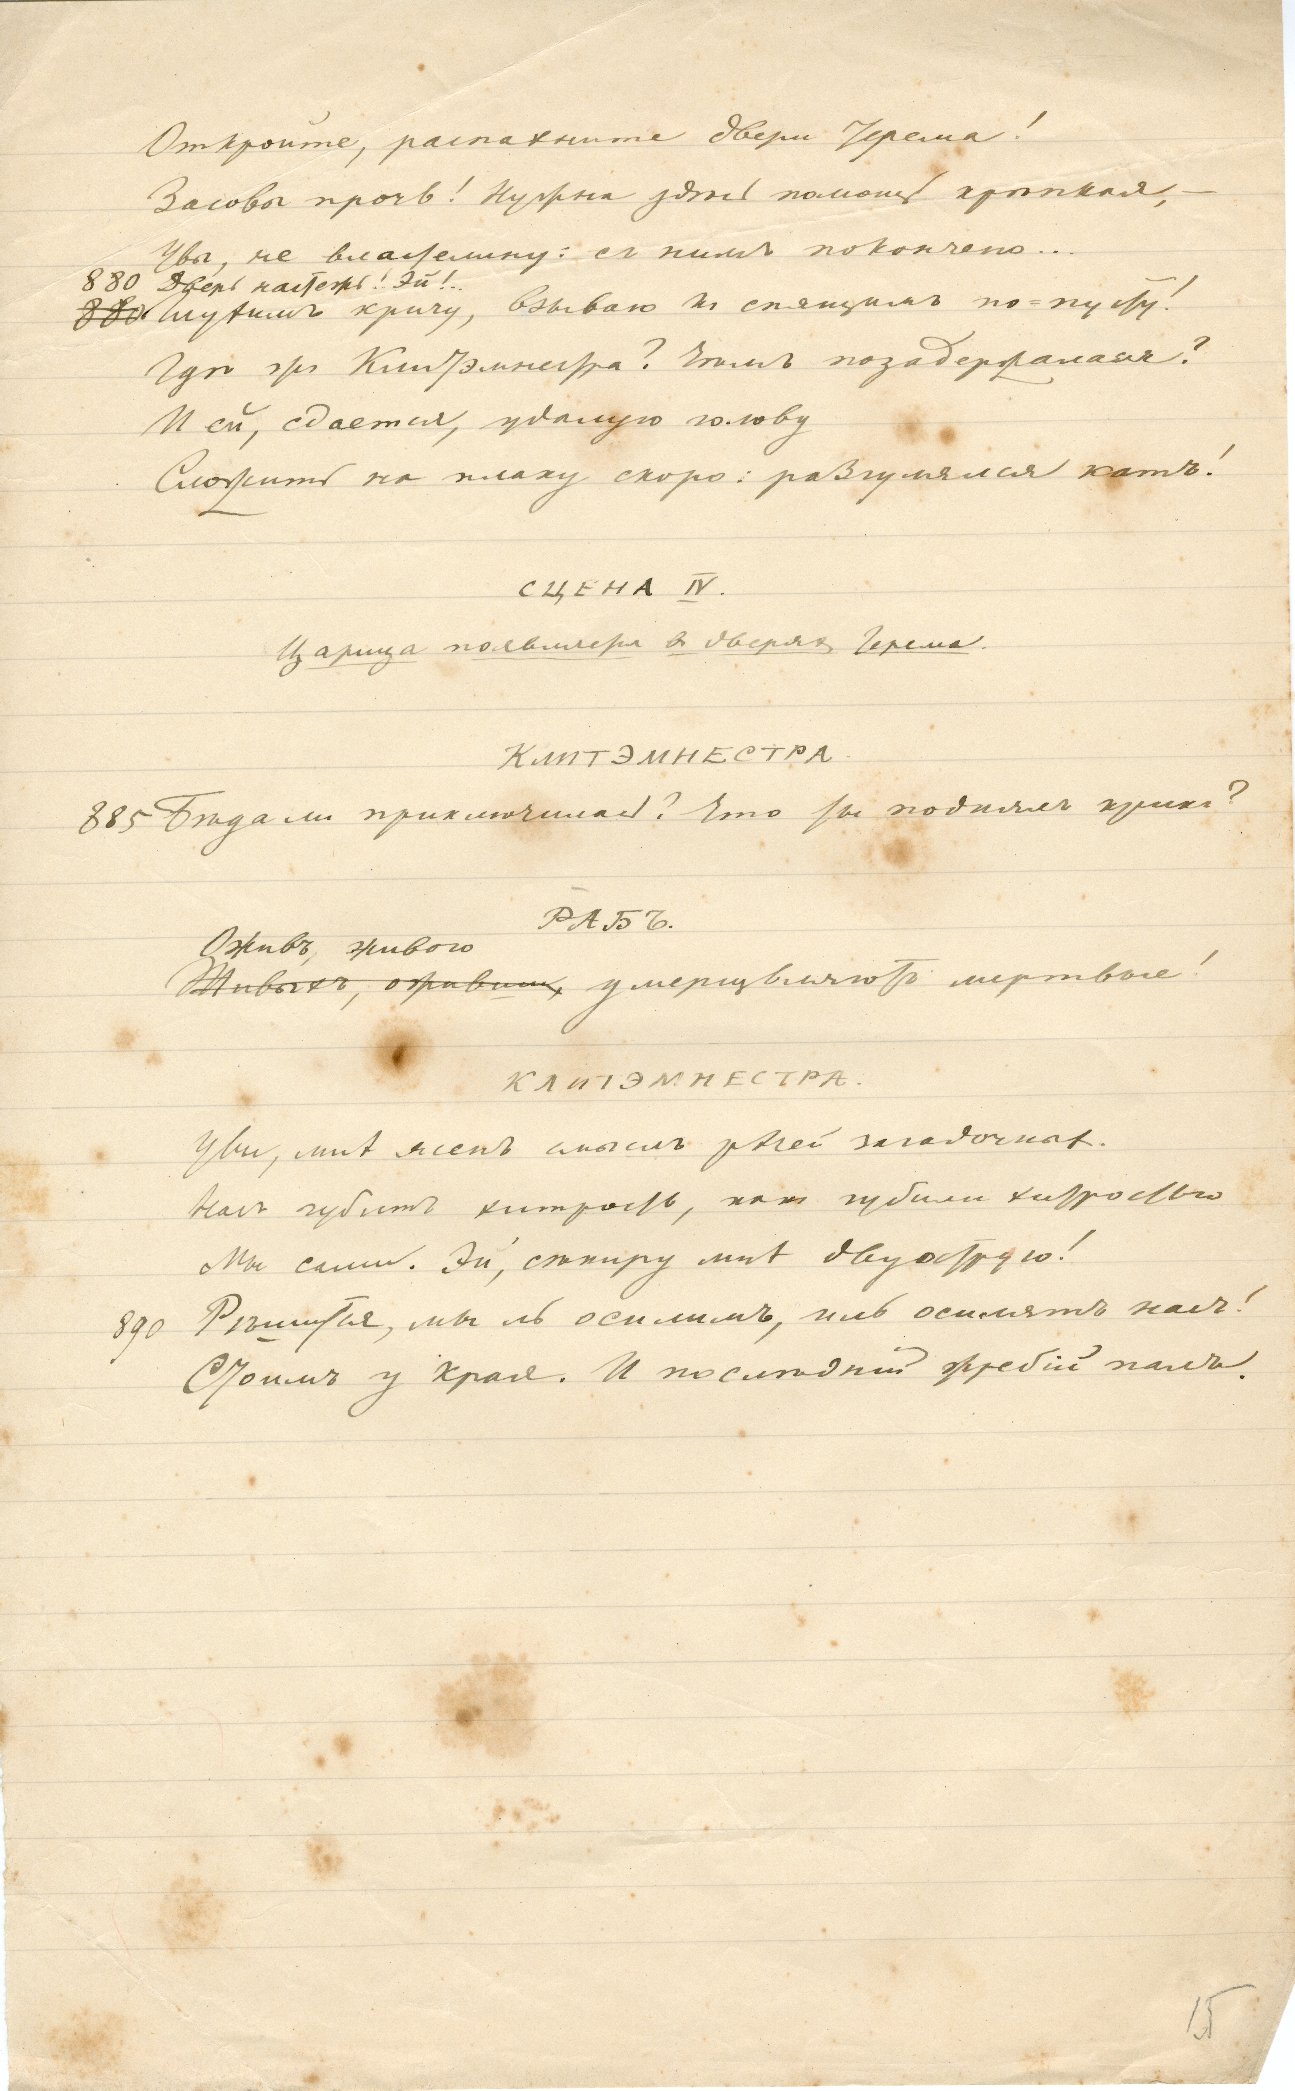 Откройте, распахните двери терема!
Засовы прочь! Нужна здѣсь помощь крѣпкая, —
Увы, не властелину: съ нимъ покончено...
880 Дверь настежь! Эй!..
880 Глухимъ кричу, взываю къ спящимъ по-пусту!
Гдѣ жъ Клитэмнестра? Чѣмъ позадержалася?
И ей, сдается, удалую голову
Сложить на плаху скоро: разгулялся катъ!
СЦЕНА IV.
Царица появляется въ дверяхъ терема.
КЛИТЭМНЕСТРА
885 Бѣда ли приключилась? Что ты поднялъ крикъ?
РАБЪ.
Оживъ, живого
Живыхъ, ожившіе, умерщвляютъ мертвые!
КЛИТЭМНЕСТРА.
Увы, мнѣ ясенъ смыслъ рѣчей загадочныхъ.
Насъ губитъ хитрость, какъ губили хитростью
Мы сами. Эй, сѣкиру мнѣ двуострую!
890 Рѣшится, мы ль осилимъ, иль осилятъ насъ!
Стоимъ у края. И послѣдній жребій палъ.
15